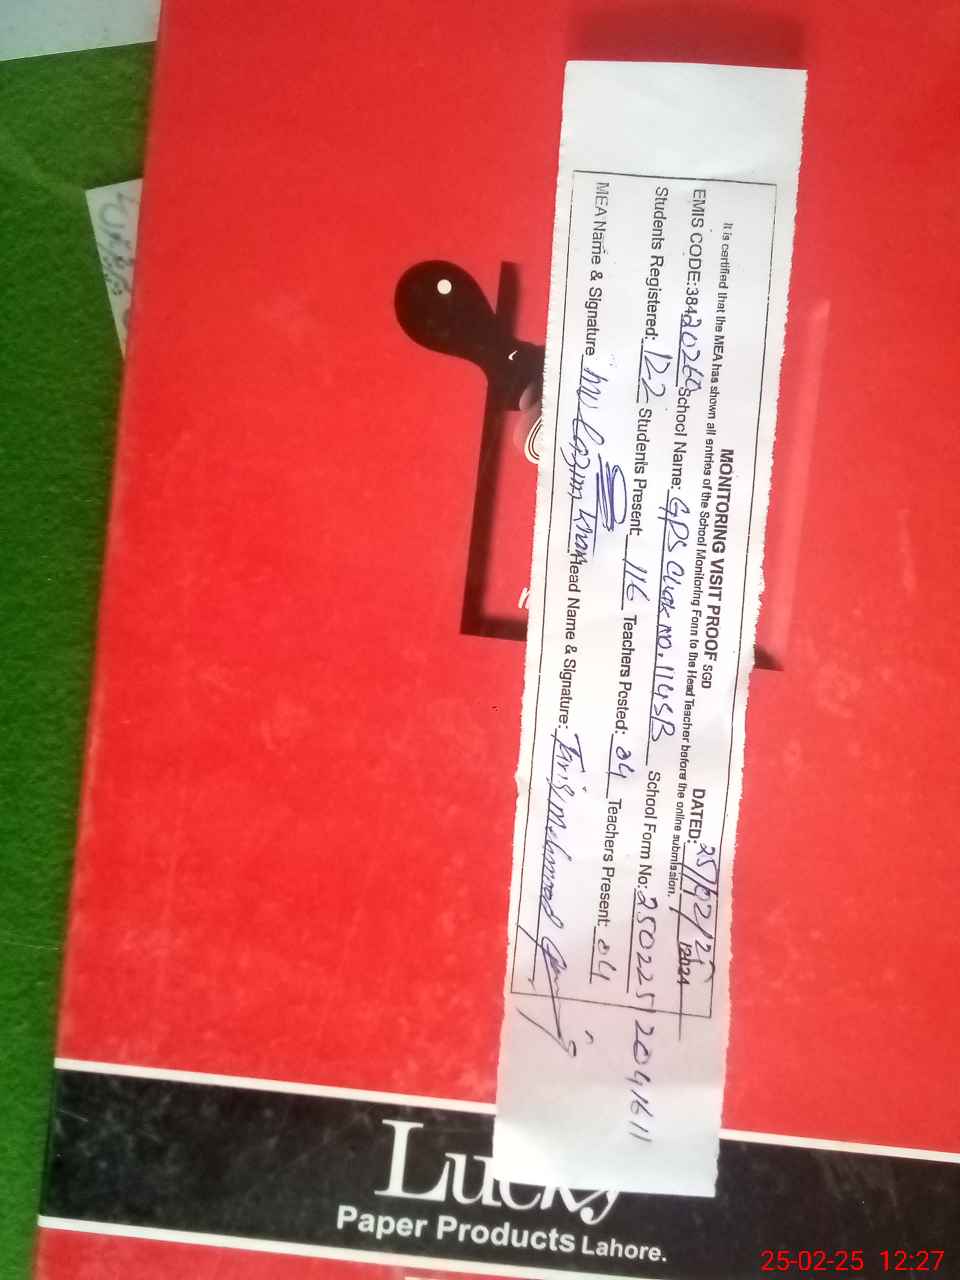 MONITORING VISIT PROOF SGD DATED: 25/02/25 /2024
It is certified that the MEA has shown all entries of the School Monitoring Form to the Head Teacher before the online submission.
EMIS CODE:38420260 School Name: GPS Chak No. 114SB School Form No: 2502252041611
Students Registered: 122 Students Present: 116 Teachers Posted: 04 Teachers Present: 04
MEA Name & Signature Khan Head Name & Signature: Mehmood
Lucky
Paper Products Lahore.
25-02-25 12:27